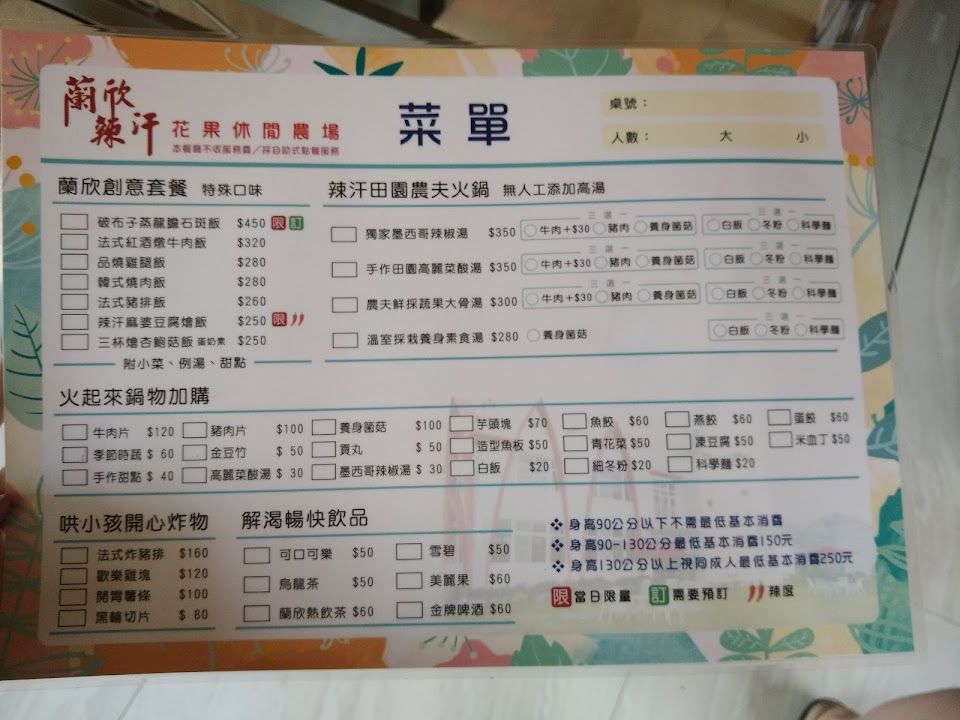 蘭欣
辣汗 花果休閒農場
本餐廳不收服務費／採自助式點餐服務
菜單
桌號：
人數： 大 小
蘭欣創意套餐 特殊口味
破布子蒸龍膽石斑飯 $450 限 訂
法式紅酒燉牛肉飯 $320
品燒雞腿飯 $280
韓式燒肉飯 $280
法式豬排飯 $260
辣汗麻婆豆腐燴飯 $250 限
三杯燴杏鮑菇飯 蛋奶素 $250
附小菜、例湯、甜點
辣汗田園農夫火鍋 無人工添加高湯
三選一 三選一
獨家墨西哥辣椒湯 $350 牛肉+$30 豬肉 養身菌菇 白飯 冬粉 科學麵
三選一 三選一
手作田園高麗菜酸湯 $350 牛肉+$30 豬肉 養身菌菇 白飯 冬粉 科學麵
三選一 三選一
農夫鮮採蔬果大骨湯 $300 牛肉+$30 豬肉 養身菌菇 白飯 冬粉 科學麵
三選一
溫室採栽養身素食湯 $280 養身菌菇 白飯 冬粉 科學麵
火起來鍋物加購
牛肉片 $120 豬肉片 $100 養身菌菇 $100 芋頭塊 $70 魚餃 $60 燕餃 $60 蛋餃 $60
季節時蔬 $ 60 金豆竹 $ 50 貢丸 $ 50 造型魚板 $50 青花菜 $50 凍豆腐 $50 米血丁 $50
手作甜點 $ 40 高麗菜酸湯 $ 30 墨西哥辣椒湯 $ 30 白飯 $20 細冬粉 $20 科學麵 $20
哄小孩開心炸物
法式炸豬排 $160
歡樂雞塊 $120
開胃薯條 $100
黑輪切片 $ 80
解渴暢快飲品
可口可樂 $50 雪碧 $50
烏龍茶 $50 美麗果 $60
蘭欣熱飲茶 $60 金牌啤酒 $60
❖ 身高90公分以下不需最低基本消費
❖ 身高90-130公分最低基本消費150元
❖ 身高130公分以上視同成人最低基本消費250元
限 當日限量 訂 需要預訂 辣度